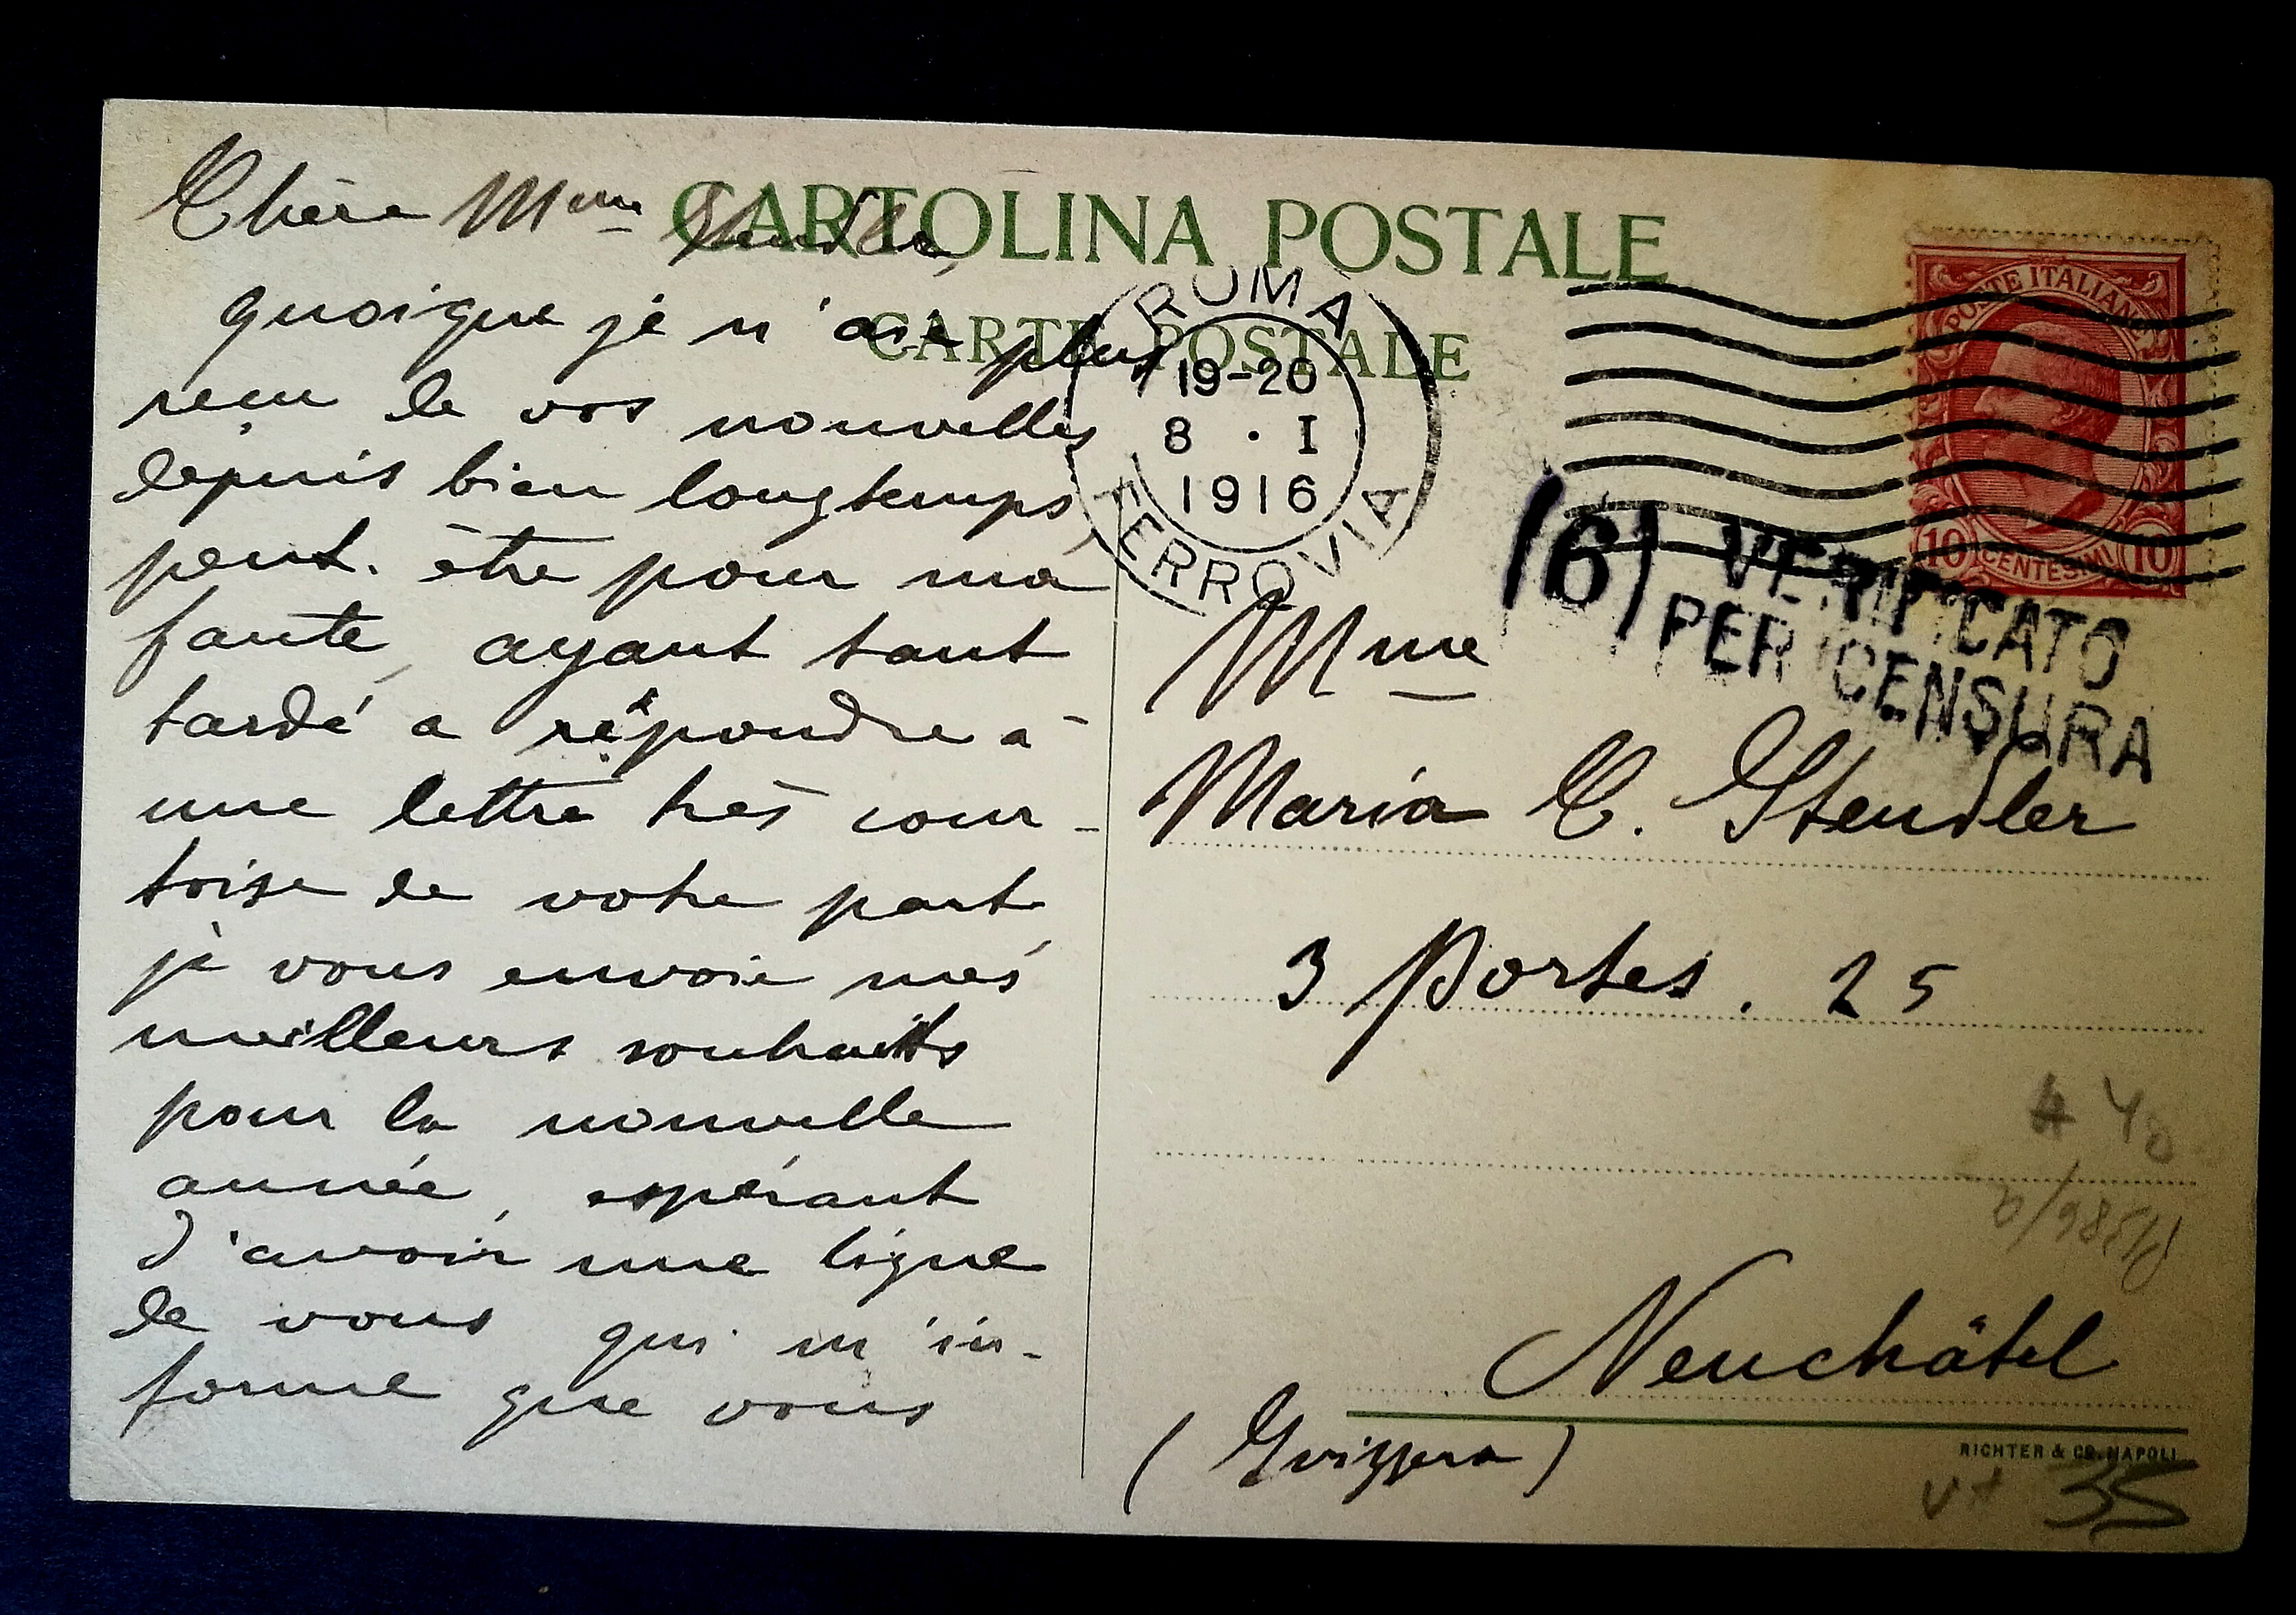 CARTOLINA POSTALE
CARTE POSTALE
Chère Mme Stendler,
quoique je n'aie plus
reçu de vos nouvelles
depuis bien longtemps
peut-être pour ma
faute, ayant tant
tardé a répondre à
une lettre très cour-
toise de votre part,
je vous envoie mes
meilleurs souhaits
pour la nouvelle
année, espérant
d'avoir une ligne
de vous qui m'in-
forme que vous
ROMA
19-20
8 · I
1916
FERROVIA
POSTE ITALIANE
10 CENTESIMI 10
(6) VERIFICATO
PER CENSURA
Mme
Maria C. Stendler
3 Portes. 25
40
Neuchâtel
(Svizzera)
RICHTER & CO. NAPOLI
35